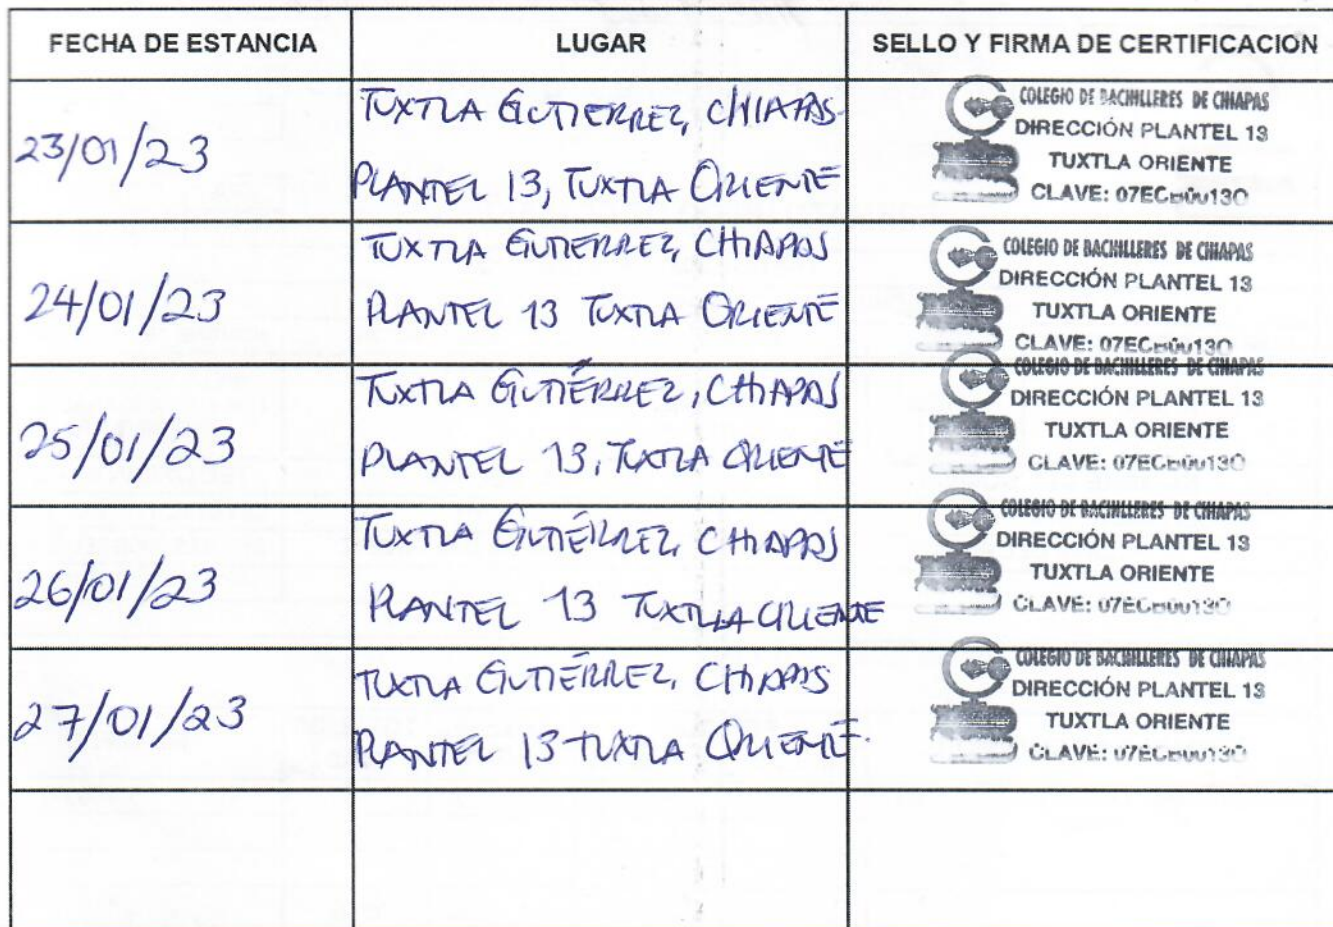 FECHA DE ESTANCIA LUGAR SELLO Y FIRMA DE CERTIFICACION
23/01/23
TUXTLA GUTIERREZ, CHIAPAS
PLANTEL 13, TUXTLA ORIENTE
COLEGIO DE BACHILLERES DE CHIAPAS
DIRECCIÓN PLANTEL 13
TUXTLA ORIENTE
CLAVE: 07ECB0013O
24/01/23
TUXTLA GUTIERREZ, CHIAPAS
PLANTEL 13 TUXTLA ORIENTE
COLEGIO DE BACHILLERES DE CHIAPAS
DIRECCIÓN PLANTEL 13
TUXTLA ORIENTE
CLAVE: 07ECB0013O
25/01/23
TUXTLA GUTIÉRREZ, CHIAPAS
PLANTEL 13, TUXTLA ORIENTE
COLEGIO DE BACHILLERES DE CHIAPAS
DIRECCIÓN PLANTEL 13
TUXTLA ORIENTE
CLAVE: 07ECB0013O
26/01/23
TUXTLA GUTIÉRREZ, CHIAPAS
PLANTEL 13 TUXTLA ORIENTE
COLEGIO DE BACHILLERES DE CHIAPAS
DIRECCIÓN PLANTEL 13
TUXTLA ORIENTE
CLAVE: 07ECB0013O
27/01/23
TUXTLA GUTIÉRREZ, CHIAPAS
PLANTEL 13 TUXTLA ORIENTE.
COLEGIO DE BACHILLERES DE CHIAPAS
DIRECCIÓN PLANTEL 13
TUXTLA ORIENTE
CLAVE: 07ECB0013O